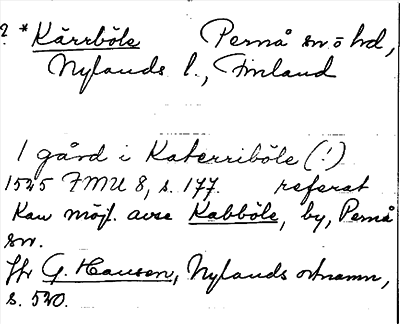 ? * Kärrböle Pernå sn o hd,
Nylands l., Finland
1 gård i Katerriböle (!)
1525 FMU 8, s. 177. referat
Kan möjl. avse Kabböle, by, Pernå
sn.
Jfr G. Hausen, Nylands ortnamn,
s. 520.